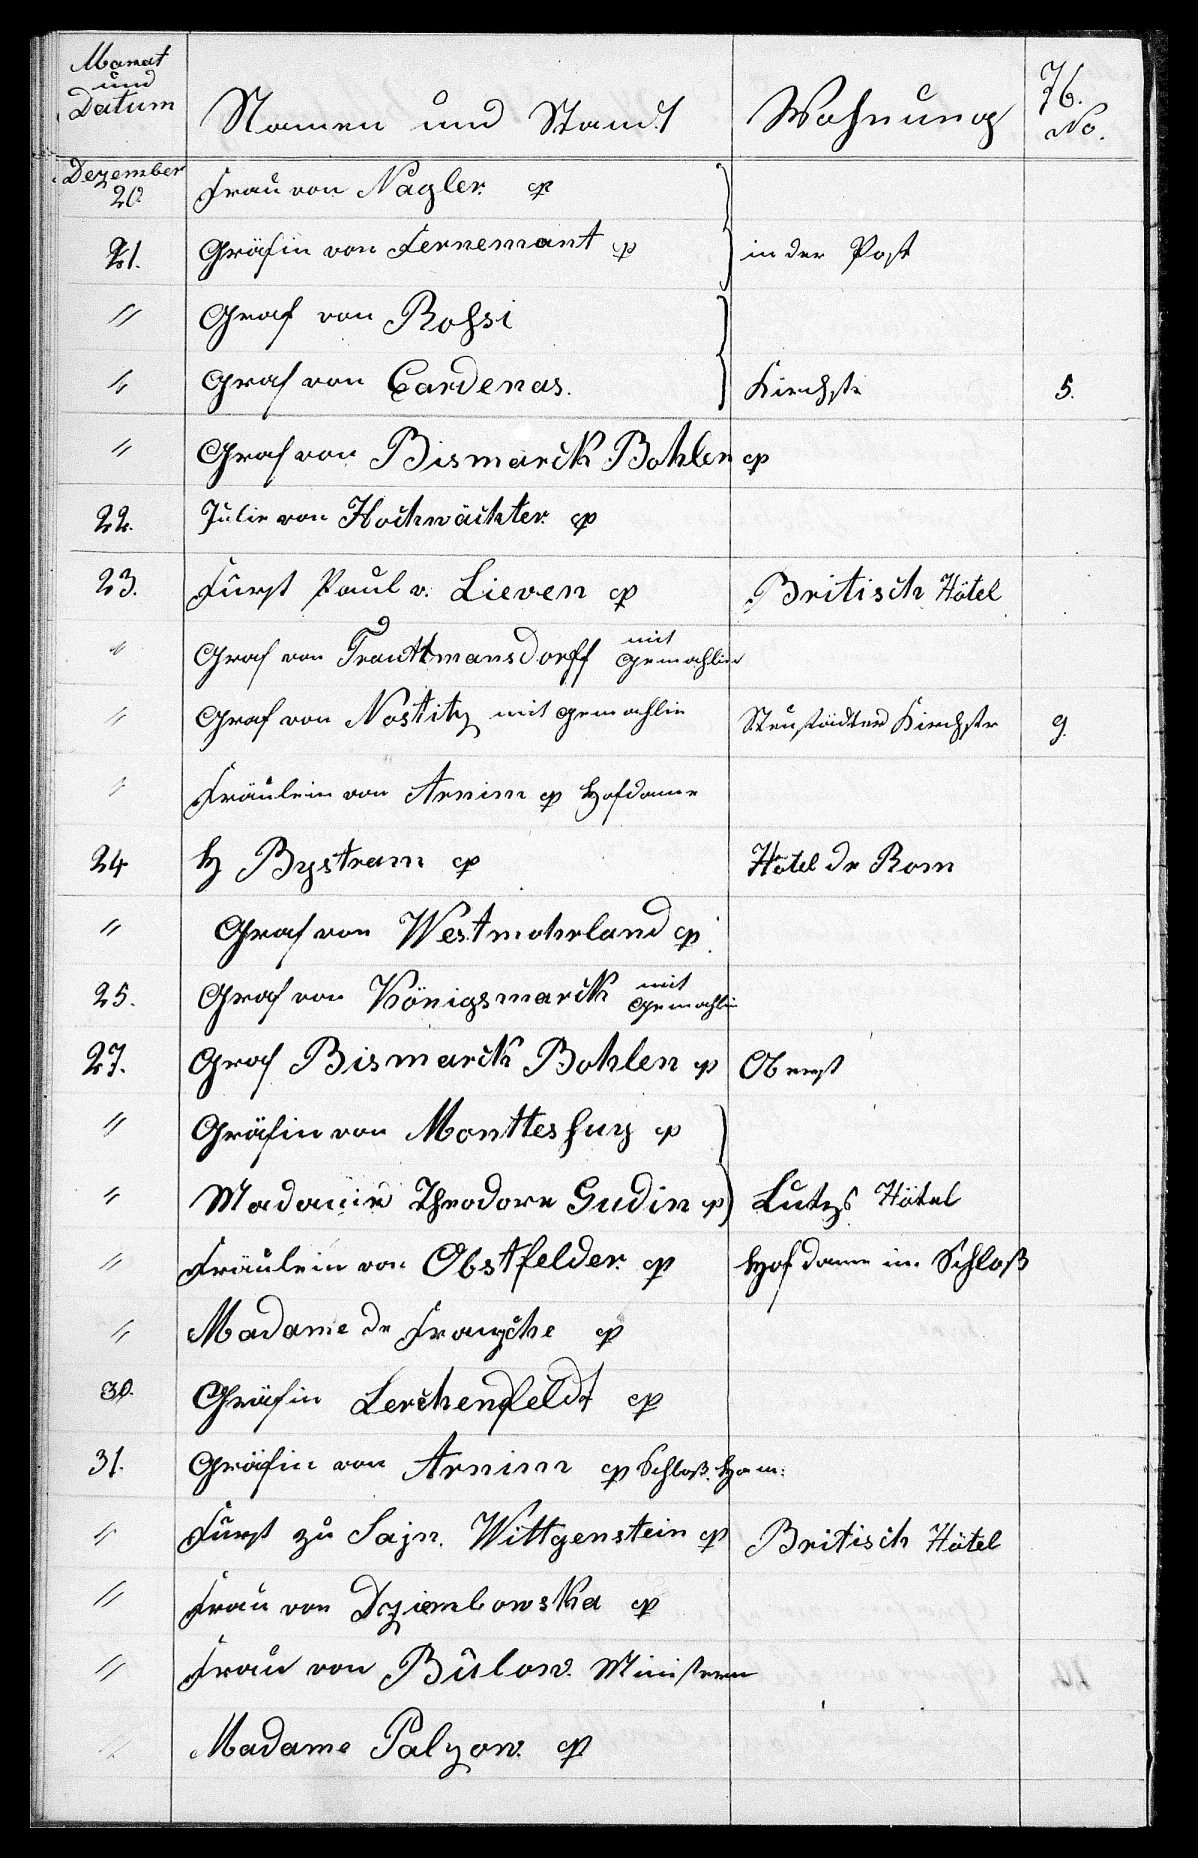 Monat und Datum Namen und Stand Wohnung 76. No.
Dezember 20. Frau von Nagler. cp
21. Gräfin von Fernemont cp in der Post
" Graf von Roßsi
" Graf von Cardenas. Kirchstr 5.
" Graf von Bismarck Bohlen cp
22. Julie von Hochwächter. cp
23. Fürst Paul v. Lieven cp Britisch Hôtel
" Graf von Trauttmansdorff mit Gemahlin
" Graf von Nostitz mit Gemahlin Neustädter Kirchstr 9.
" Fräulein von Arnim cp Hofdame
24 H Bystram cp Hôtel de Rom
" Graf von Westmohrland cp
25. Graf von Königsmarck mit Gemahlin
27. Graf Bismarck Bohlen cp Oberst
" Gräfin von Monttesguy cp
" Madame Theodore Gudin cp Lutzs Hôtel
" Fräulein von Obstfelder. cp Hofdame im Schloß
" Madame de cp
30. Gräfin Lerchenfeldt cp
31. Gräfin von Arnim cp Schloß.
" Fürst zu Sajn. Wittgenstein cp Britisch Hôtel
" Frau von Dziembowska cp
" Frau von Bülow. Ministerin
" Madame Palzow. cp